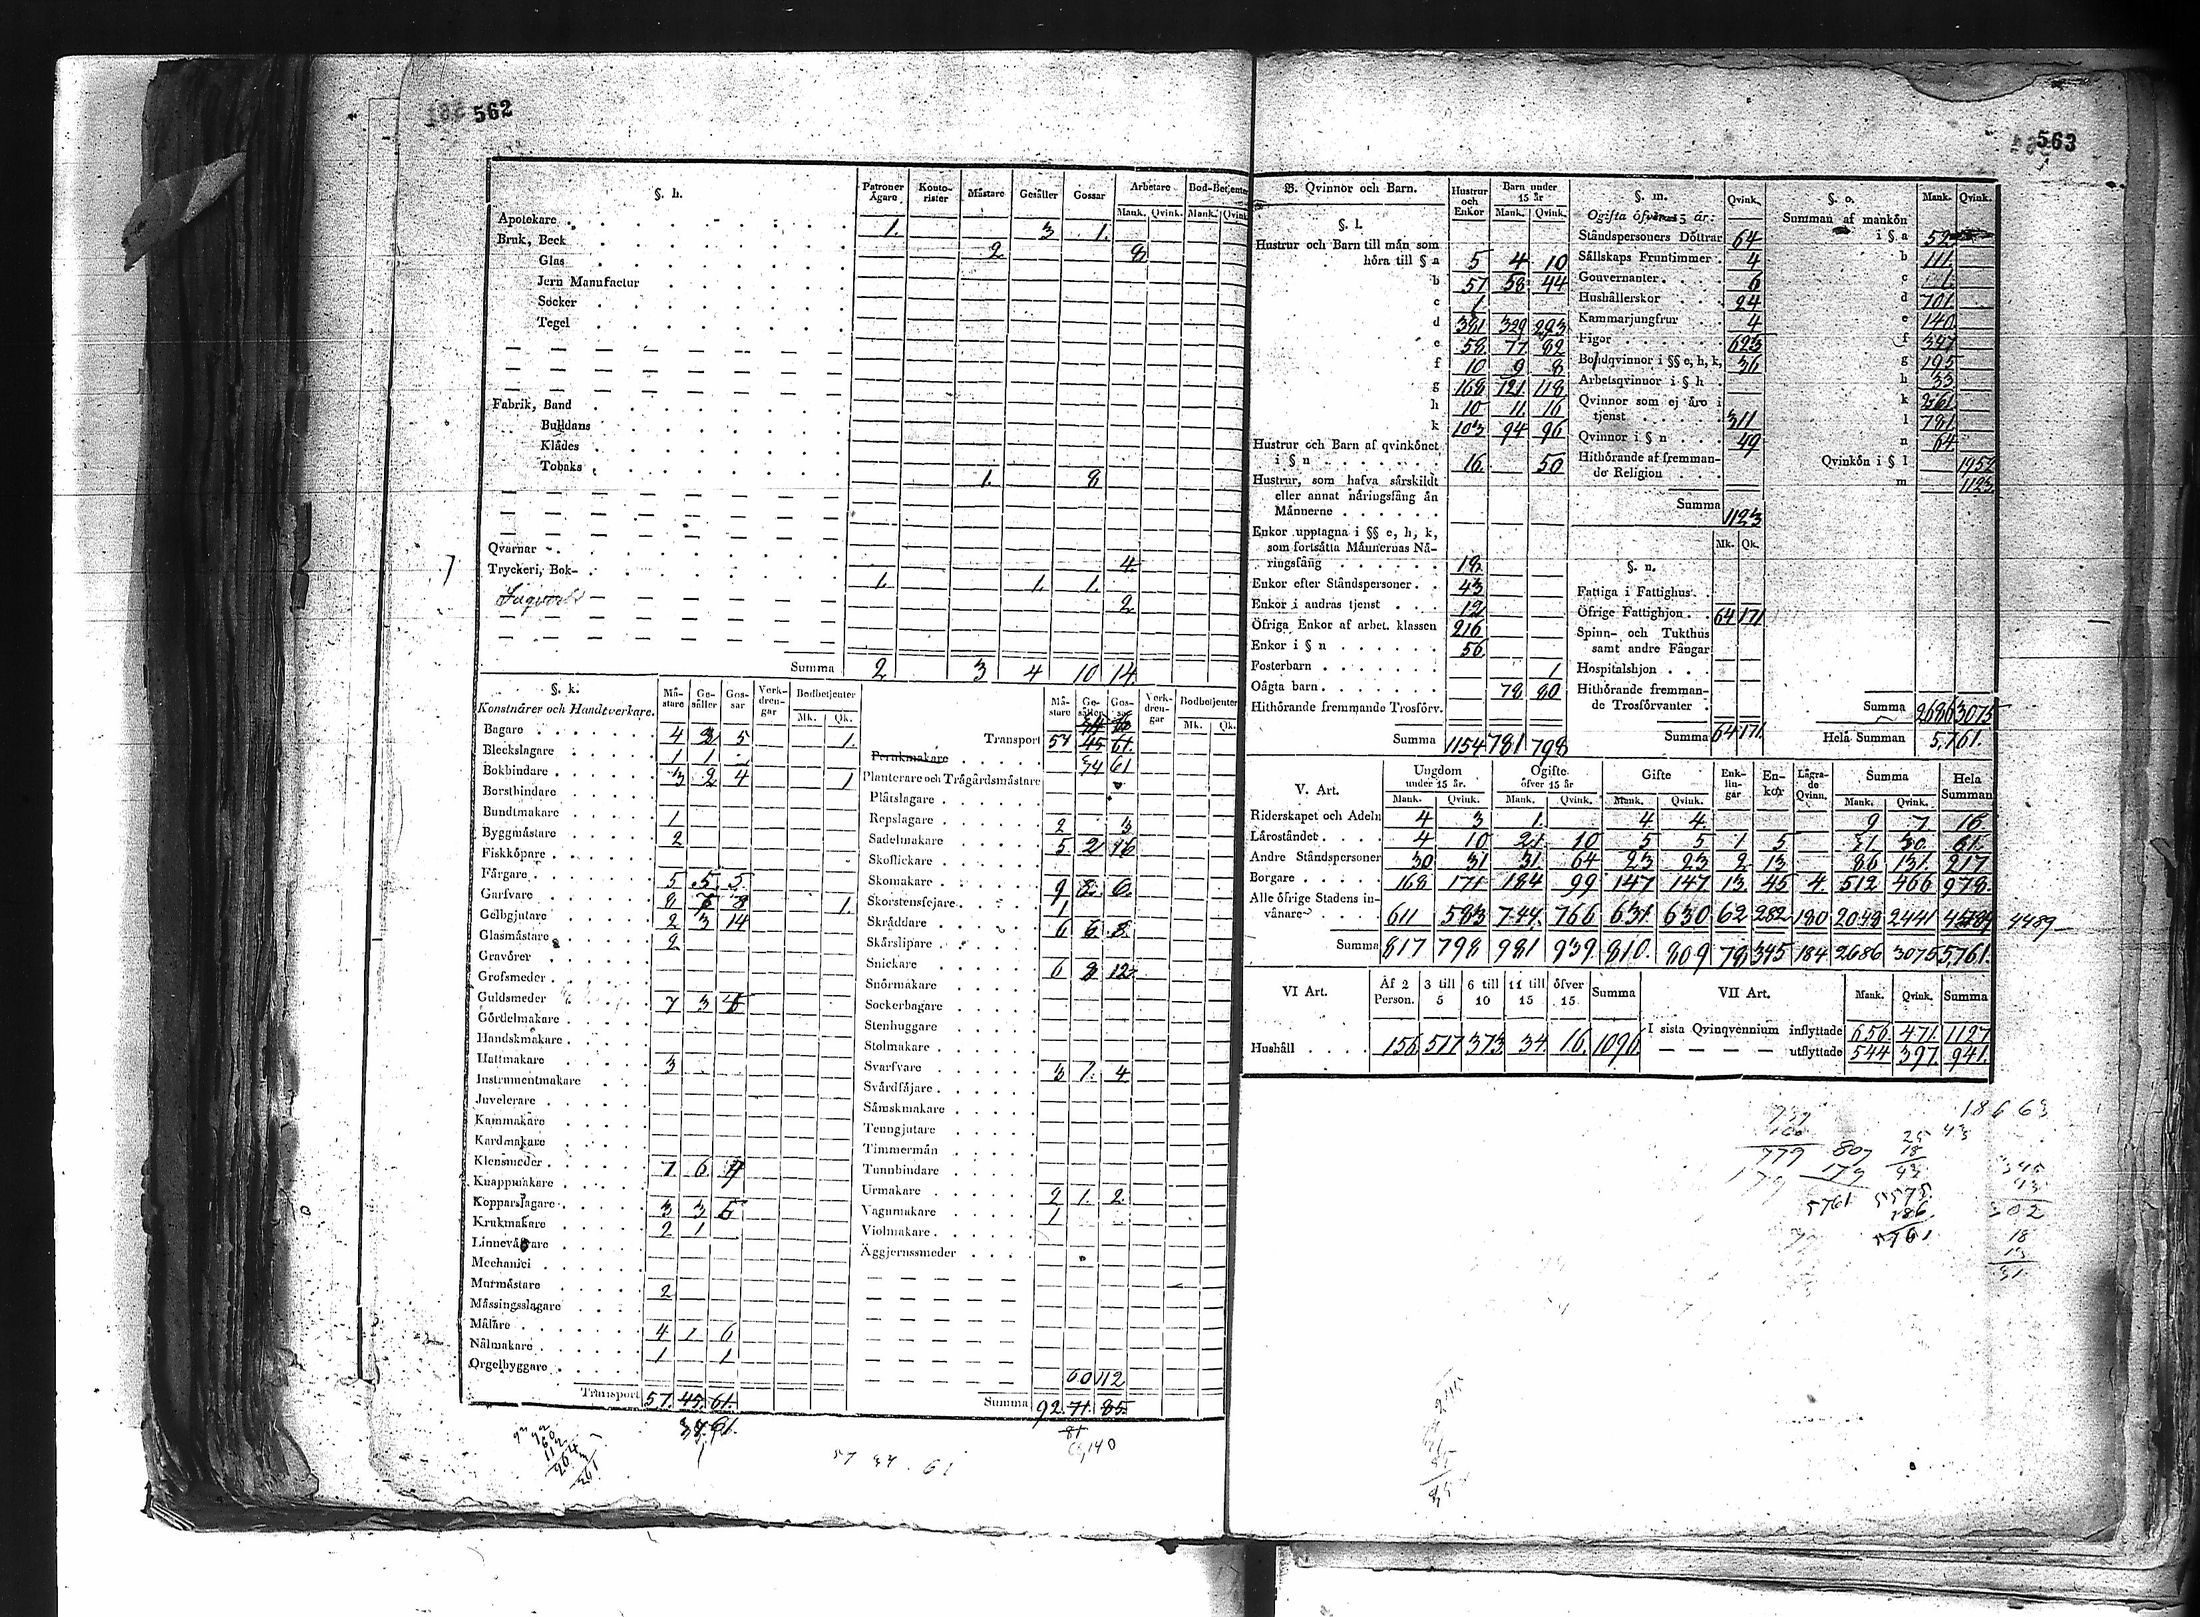 562
§. h. Patroner Ägare Konto-rister Mästare Gesäller Gossar Arbetare Bod-Betjenter
Mank. Qvink. Mank. Qvink.
Apotekare 1. 3 1.
Bruk, Beck 2 8
Glas
Jern Manufactur
Socker
Tegel
Fabrik, Band
Bulldans
Klädes
Tobaks 1. 8
Qvarnar 4
Tryckeri, Bok- 1. 1. 1.
2
Summa 2 3 4 10 14
§. k.
Konstnärer och Handtverkare. Mä-stare Ge-säller Gos-sar Verk-dren-gar Bodbetjenter
Mk. Qk.
Bagare 4 3 5 1.
Bleckslagare 1 1
Bokbindare 3 2 4 1
Borstbindare
Bundtmakare 1
Byggmästare 2
Fiskköpare
Färgare 5 5 5
Garfvare 8 6 8 1.
Gelbgjutare 2 3 14
Glasmästare 2
Gravörer
Grofsmeder
Guldsmeder 7 3
Gördelmakare
Handskmakare
Hattmakare 3
Instrumentmakare
Juvelerare
Kammakare
Kardmakare
Klensmeder 7 6
Knappmakare
Kopparslagare 3 3
Krukmakare 2 1
Linnevåfvare
Mechanici
Murmästare 2
Mässingsslagare
Målare 4 1 6
Nålmakare 1 1
Orgelbyggare
Transport 57. 45. 61.
61.
Mä-stare Ge-säller Gos-sar Verk-dren-gar Bodbetjenter
Mk. Qk.
Transport 57 45 61.
Perukmakare 34 61
Planterare och Trägårdsmästare
Plåtslagare
Repslagare 2 3
Sadelmakare 5 2 16
Skoflickare
Skomakare 9 8 6
Skorstensfejare 1
Skräddare 6 6 8
Skärslipare
Snickare 6 8 12
Snörmakare
Sockerbagare
Stenhuggare
Stolmakare
Svarfvare 3 1. 4
Svärdfäjare
Sämskmakare
Tenngjutare
Timmermän
Tunnbindare
Urmakare 2 1. 2
Vagnmakare 1
Violmakare
Äggjernssmeder
60 112
Summa 92. 71. 85.
81
57 34. 61
563
B. Qvinnor och Barn. Hustrur och Enkor Barn under 15 år
Mank. Qvink.
§. l.
Hustrur och Barn till män som
höra till § a 5 4 10
b 57 58 44
c 1
d 381 329 293
e 58 77 82
f 10 9 8
g 168 121 118
h 10 11 16
k 103 94 96
Hustrur och Barn af qvinkönet
i § n 16 50
Hustrur, som hafva särskildt
eller annat näringsfång än
Männerne
Enkor upptagna i §§ e, h, k,
som fortsätta Männernas Nä-
ringsfång 18
Enkor efter Ståndspersoner 43
Enkor i andras tjenst 12
Öfriga Enkor af arbet. klassen 216
Enkor i § n 56
Fosterbarn 1
Oägta barn 78 80
Hithörande fremmande Trosförv.
Summa 1154 781 798
§. m. Qvink.
Ogifta öfver 15 år:
Ståndspersoners Döttrar 64
Sällskaps Fruntimmer 4
Gouvernanter 6
Hushållerskor 24
Kammarjungfrur 4
Pigor 623
Bohdqvinnor i §§ e, h, k, 36
Arbetsqvinnor i § h
Qvinnor som ej äro i
tjenst 311
Qvinnor i § n 49
Hithörande af fremman-
de Religion
Summa 1123
Mk. Qk.
§. n.
Fattiga i Fattighus
Öfrige Fattighjon 64 171
Spinn- och Tukthus
samt andre Fångar
Hospitalshjon
Hithörande fremman-
de Trosförvanter
Summa 64 171
§. o. Mank. Qvink.
Summan af mankön
i § a 52
b 111
c 1.
d 701.
e 140
f 347
g 195
h 33
k 261
l 781
n 64
Qvinkön i § l 1952
m 1123.
Summa 2686 3075
Hela Summan 5,761.
V. Art. Ungdom under 15 år. Ogifte öfver 15 år Gifte Enk-lin-gar En-kor Lägra-de Qvinn. Summa Hela Summan
Mank. Qvink. Mank. Qvink. Mank. Qvink. Mank. Qvink.
Riderskapet och Adeln 4 3 1. 4 4 9 7 16.
Läroståndet 4 10 21 10 5 5 1 5 31 30 61.
Andre Ståndspersoner 30 31 31 64 23 23 2 13 86 131 217
Borgare 168 171 184 99 147 147 13 45 4. 512 466 978.
Alle öfrige Stadens in-
vånare 611 583 744. 766 631. 630 62 282 180 2048 2441 4489
Summa 817 798 981 939 810. 809 78 345 184 2686 3075 5,761.
VI Art. Af 2 Person. 3 till 5 6 till 10 11 till 15 öfver 15 Summa
Hushåll 156 517 373 34 16. 1096.
VII Art. Mank. Qvink. Summa
I sista Qvinqvennium inflyttade 656. 471. 1127
utflyttade 544 397. 941.
18663
779
807
179
5761
5575
186
5761
25
18
43
43
345
43
302
18
13
31